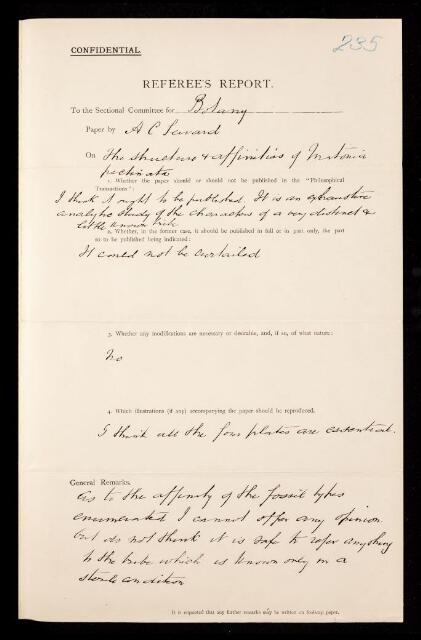 CONFIDENTIAL.
235
REFEREE'S REPORT.
To the Sectional Committee for Botany
Paper by A C Seward
On The structure & affinities of Matonia
pectinata
1. Whether the paper should or should not be published in the "Philosophical
Transactions":
I think it ought to be published. It is an exhaustive
analytic study of the characters of a very distinct &
little known tribe
2. Whether, in the former case, it should be published in full or in part only, the part
so to be published being indicated:
It could not be curtailed
3. Whether any modifications are necessary or desirable, and, if so, of what nature:
No
4. Which illustrations (if any) accompanying the paper should be reproduced.
I think all the four plates are essential.
General Remarks.
As to the affinity of the fossil types
enumerated I cannot offer any opinion
but do not think it is safe to refer anything
to the tribe which is known only in a
sterile condition
It is requested that any further remarks may be written on foolscap paper.